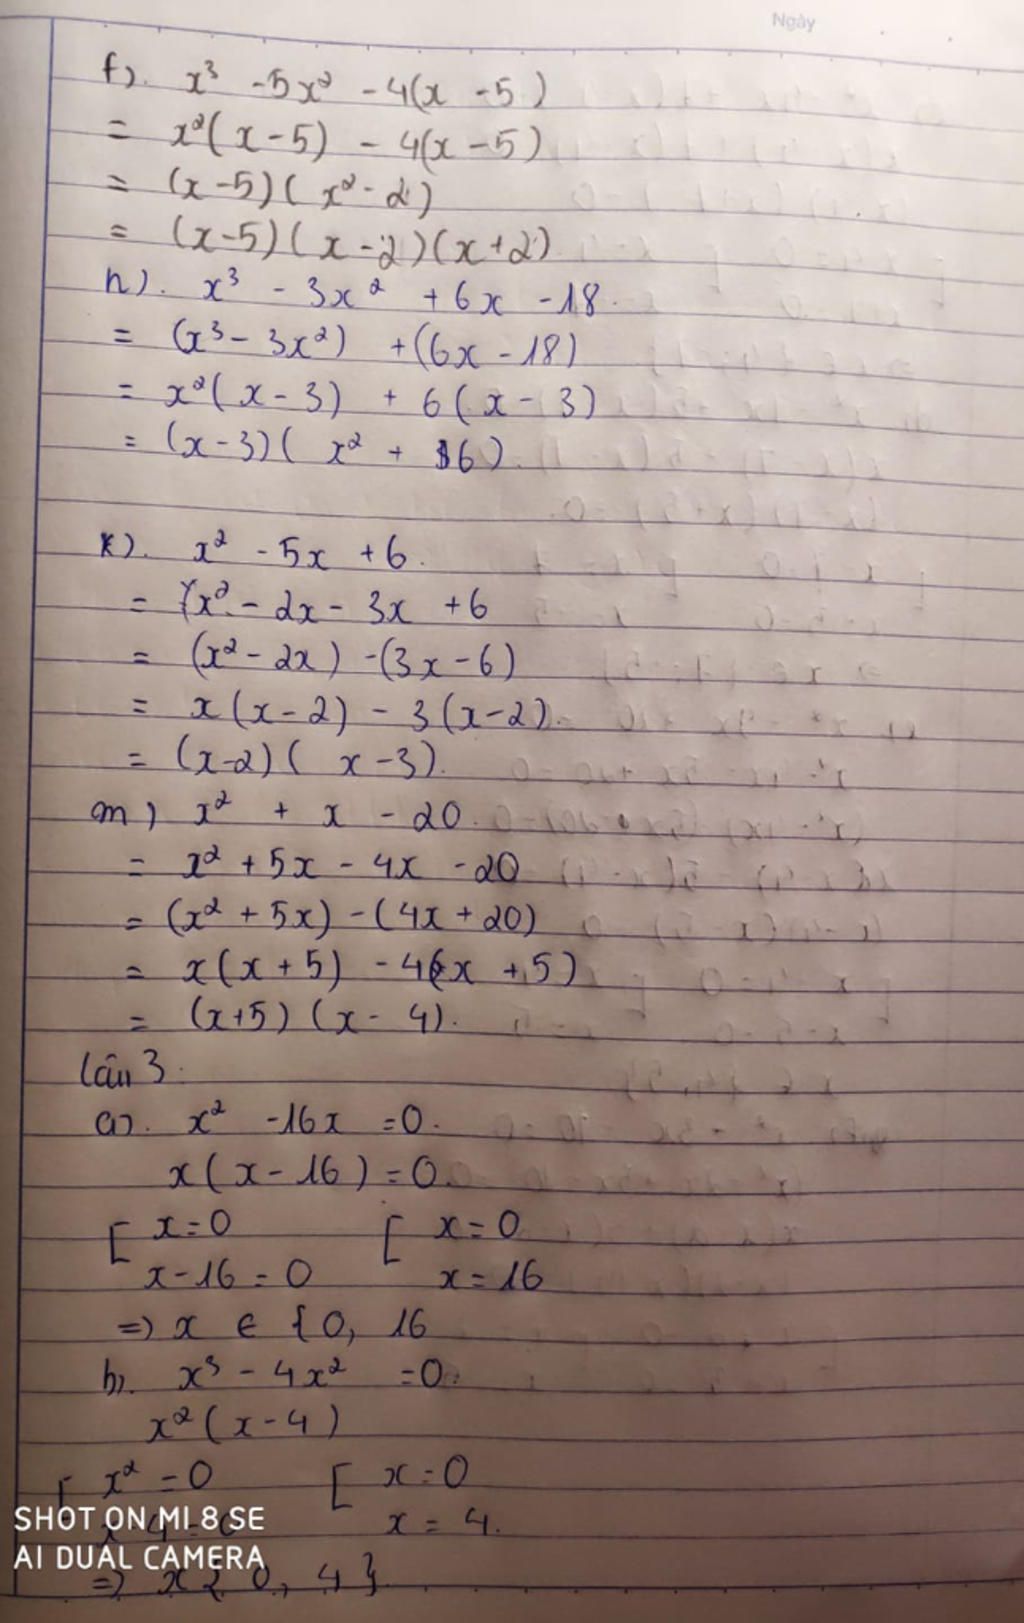 Ngày
f). x³ - 5x² - 4(x - 5)
= x²(x - 5) - 4(x - 5)
= (x - 5)(x² - 2)
= (x - 5)(x - 2)(x + 2)
h). x³ - 3x² + 6x - 18.
= (x³ - 3x²) + (6x - 18)
= x²(x - 3) + 6(x - 3)
= (x - 3)(x² + 6).
k). x² - 5x + 6.
= x² - 2x - 3x + 6
= (x² - 2x) - (3x - 6)
= x(x - 2) - 3(x - 2).
= (x - 2)(x - 3).
m) x² + x - 20.
= x² + 5x - 4x - 20
= (x² + 5x) - (4x + 20)
= x(x + 5) - 4(x + 5)
= (x + 5)(x - 4).
3.
a). x² - 16x = 0.
x(x - 16) = 0.
[ x = 0 [ x = 0
x - 16 = 0 x = 16
=> x ∈ { 0, 16
b). x³ - 4x² = 0.
x²(x - 4)
[ x² = 0 [ x = 0
x - 4 = 0 x = 4.
=> x { 0, 4 }
SHOT ON MI 8 SE
AI DUAL CAMERA